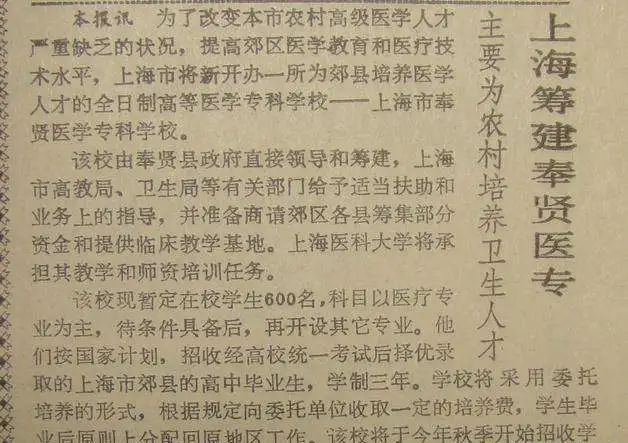 上海筹建奉贤医专
主要为农村培养卫生人才
本报讯 为了改变本市农村高级医学人才
严重缺乏的状况，提高郊区医学教育和医疗技
术水平，上海市将新开办一所为郊县培养医学
人才的全日制高等医学专科学校——上海市奉
贤医学专科学校。
该校由奉贤县政府直接领导和筹建，上海
市高教局、卫生局等有关部门给予适当扶助和
业务上的指导，并准备商请郊区各县筹集部分
资金和提供临床教学基地。上海医科大学将承
担其教学和师资培训任务。
该校现暂定在校学生600名，科目以医疗专
业为主，待条件具备后，再开设其它专业。他
们按国家计划，招收经高校统一考试后择优录
取的上海市郊县的高中毕业生，学制三年。学校将采用委托
培养的形式，根据规定向委托单位收取一定的培养费，学生毕
业后原则上分配回原地区工作。该校将于今年秋季开始招收学